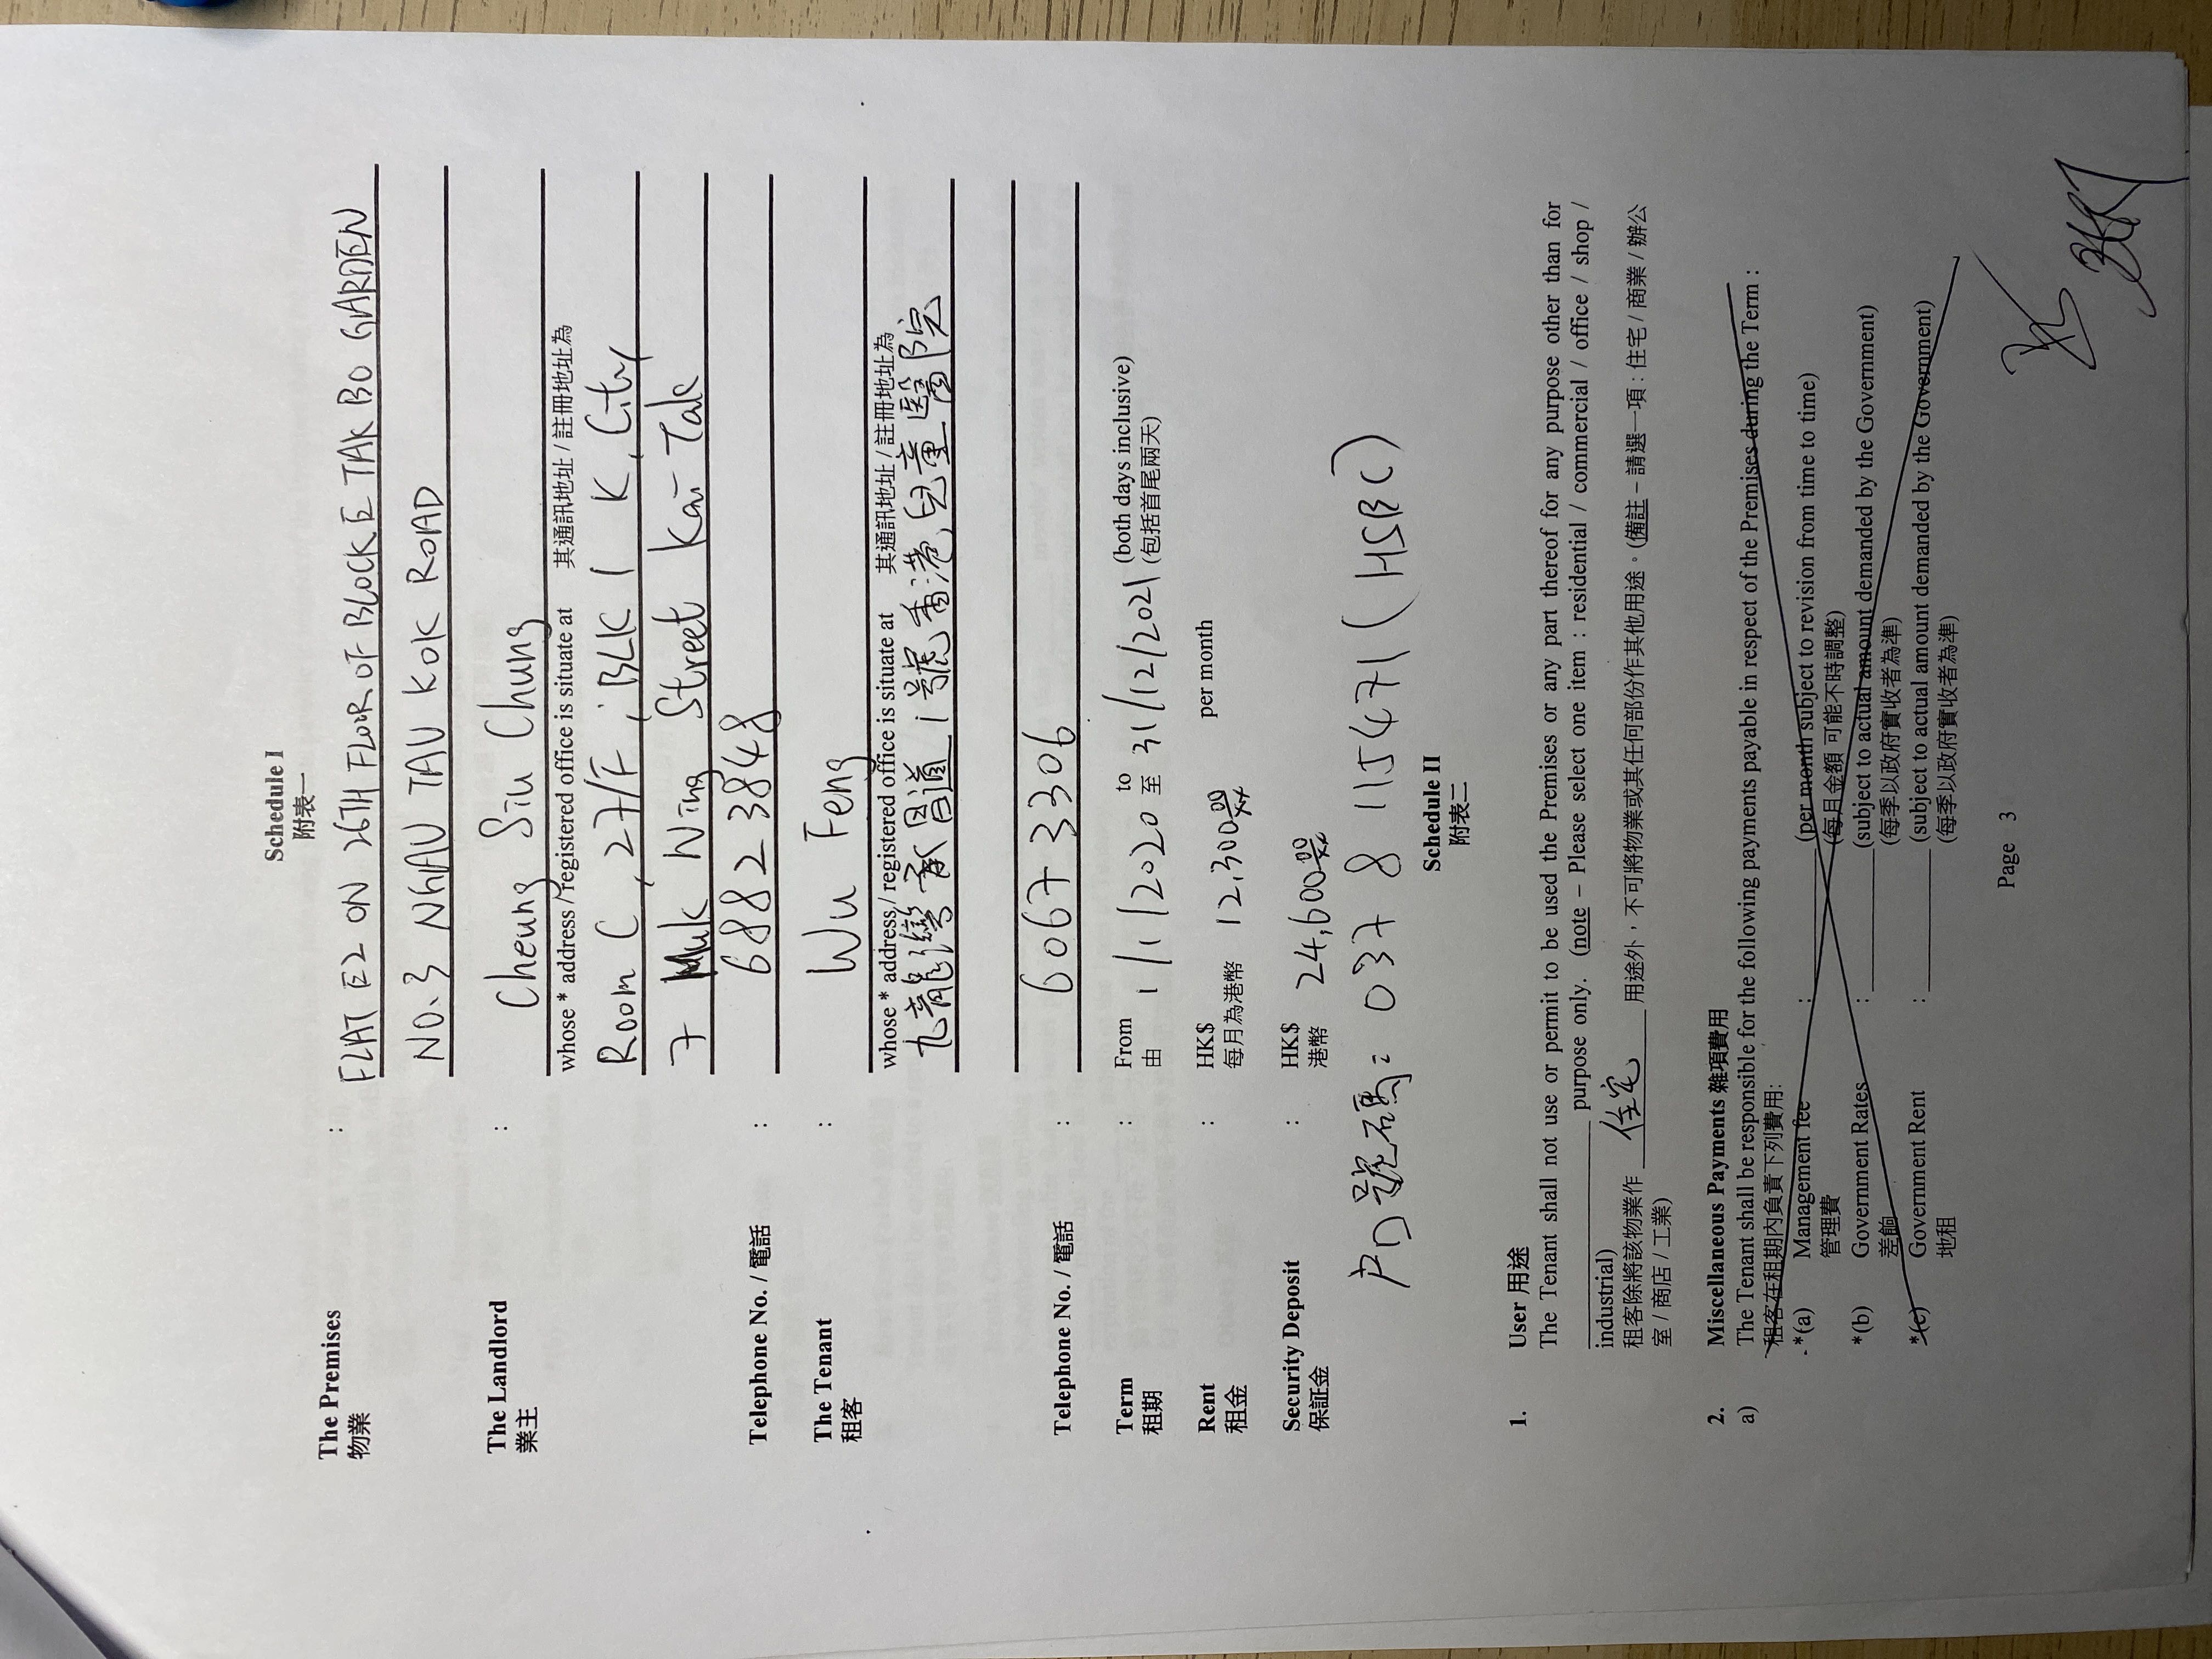 Schedule I
附表一
The Premises : FLAT E2 ON 26TH FLOOR OF BLOCK E TAK BO GARDEN
物業
NO.3 NGAU TAU KOK ROAD
The Landlord : Cheung Siu Chung
業主
whose * address / registered office is situate at 其通訊地址 / 註冊地址為
Room C, 27/F, BLK 1 K. City
7 Muk Ning Street Kai Tak
Telephone No. / 電話 : 6882 3848
The Tenant : Wu Feng
租客
whose * address / registered office is situate at 其通訊地址 / 註冊地址為
九龍灣承昌道1號香港兒童醫院
Telephone No. / 電話 : 6067 3306
Term : From 1/1/2020 to 31/12/2021 (both days inclusive)
租期 由 至 (包括首尾兩天)
Rent : HK$ 12,300 per month
租金 每月為港幣
Security Deposit : HK$ 24,600
保証金 港幣
戶口號碼: 037 8 115471 (HSBC)
Schedule II
附表二
1. User 用途
The Tenant shall not use or permit to be used the Premises or any part thereof for any purpose other than for
purpose only. (note – Please select one item : residential / commercial / office / shop /
industrial)
租客除將該物業作 住宅 用途外，不可將物業或其任何部份作其他用途。(備註 – 請選一項 : 住宅 / 商業 / 辦公
室 / 商店 / 工業)
2. Miscellaneous Payments 雜項費用
a) The Tenant shall be responsible for the following payments payable in respect of the Premises during the Term :
租客在租期內負責下列費用:
*(a) Management fee : (per month subject to revision from time to time)
管理費 (每月金額 可能不時調整)
*(b) Government Rates : (subject to actual amount demanded by the Government)
差餉 (每季以政府實收者為準)
*(c) Government Rent : (subject to actual amount demanded by the Government)
地租 (每季以政府實收者為準)
Page 3